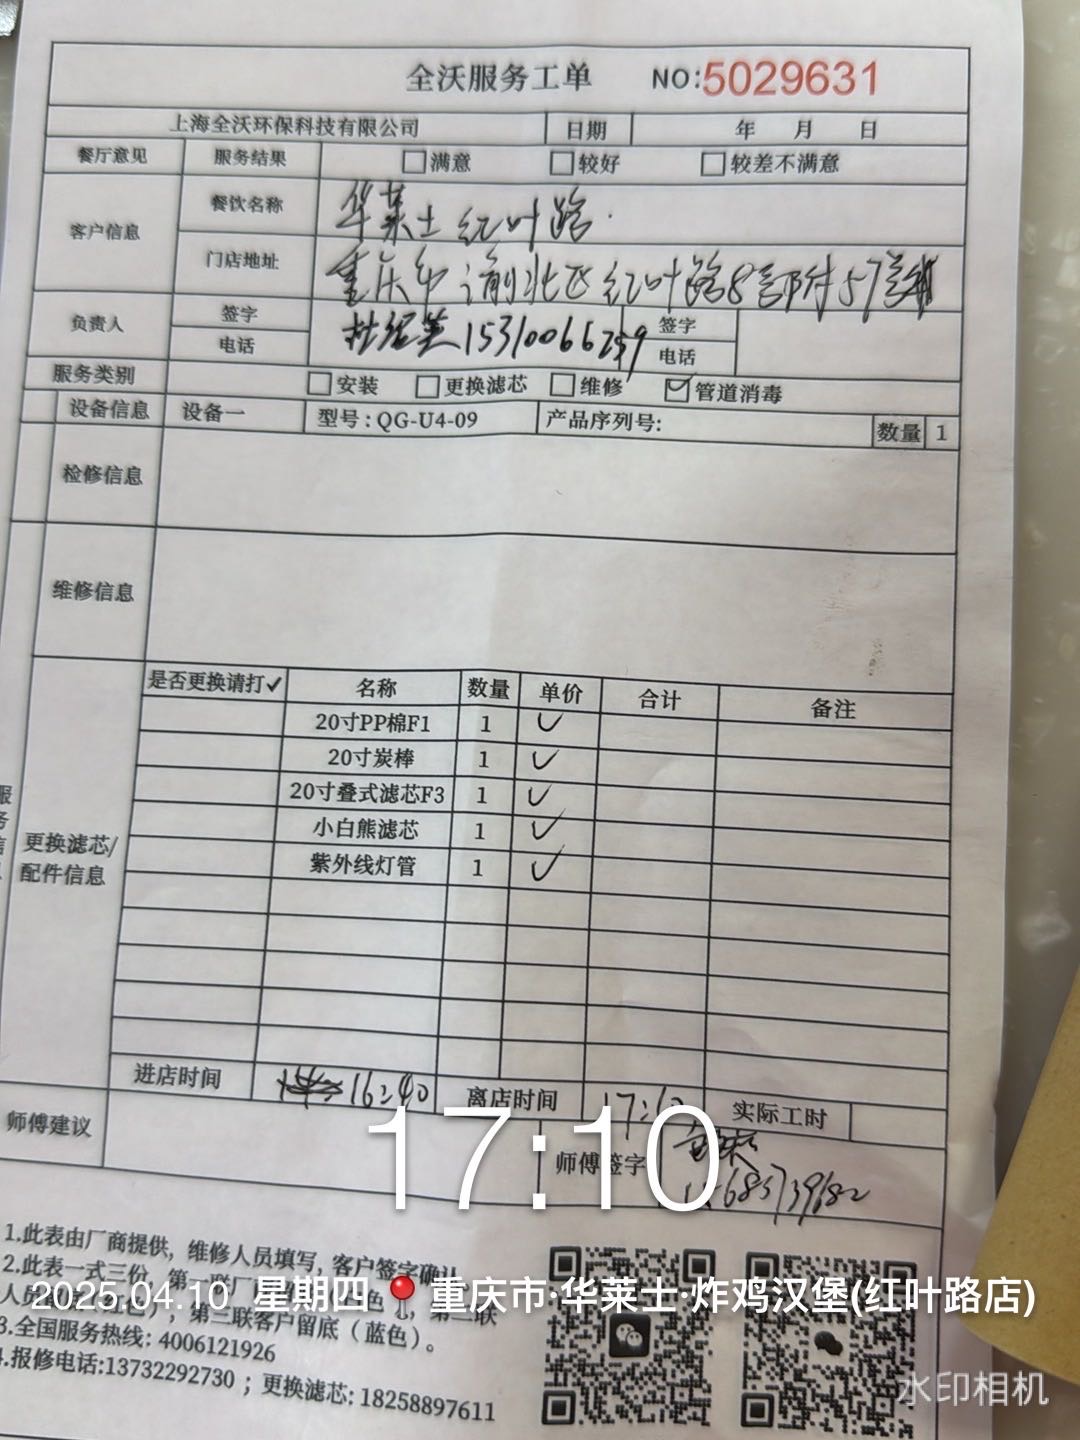 全沃服务工单 NO:5029631
上海全沃环保科技有限公司 日期 年 月 日
餐厅意见 服务结果 □满意 □较好 □较差不满意
客户信息 餐饮名称 华莱士红叶路
门店地址 重庆市渝北区红叶路8号附57号
负责人 签字 签字
电话 15310066259 电话
服务类别 □安装 □更换滤芯 □维修 ☑管道消毒
设备信息 设备一 型号:QG-U4-09 产品序列号: 数量 1
检修信息
维修信息
是否更换请打✓ 名称 数量 单价 合计 备注
20寸PP棉F1 1 ✓
20寸炭棒 1 ✓
20寸叠式滤芯F3 1 ✓
小白熊滤芯 1 ✓
紫外线灯管 1 ✓
更换滤芯/
配件信息
进店时间 16:40 离店时间 实际工时
师傅建议 师傅签字
17:10
1.此表由厂商提供，维修人员填写，客户签字确认
2.此表一式三份，第一联厂
2025.04.10 星期四 重庆市·华莱士·炸鸡汉堡(红叶路店)
第三联客户留底（蓝色）。
3.全国服务热线: 4006121926
4.报修电话:13732292730 ；更换滤芯: 18258897611
水印相机